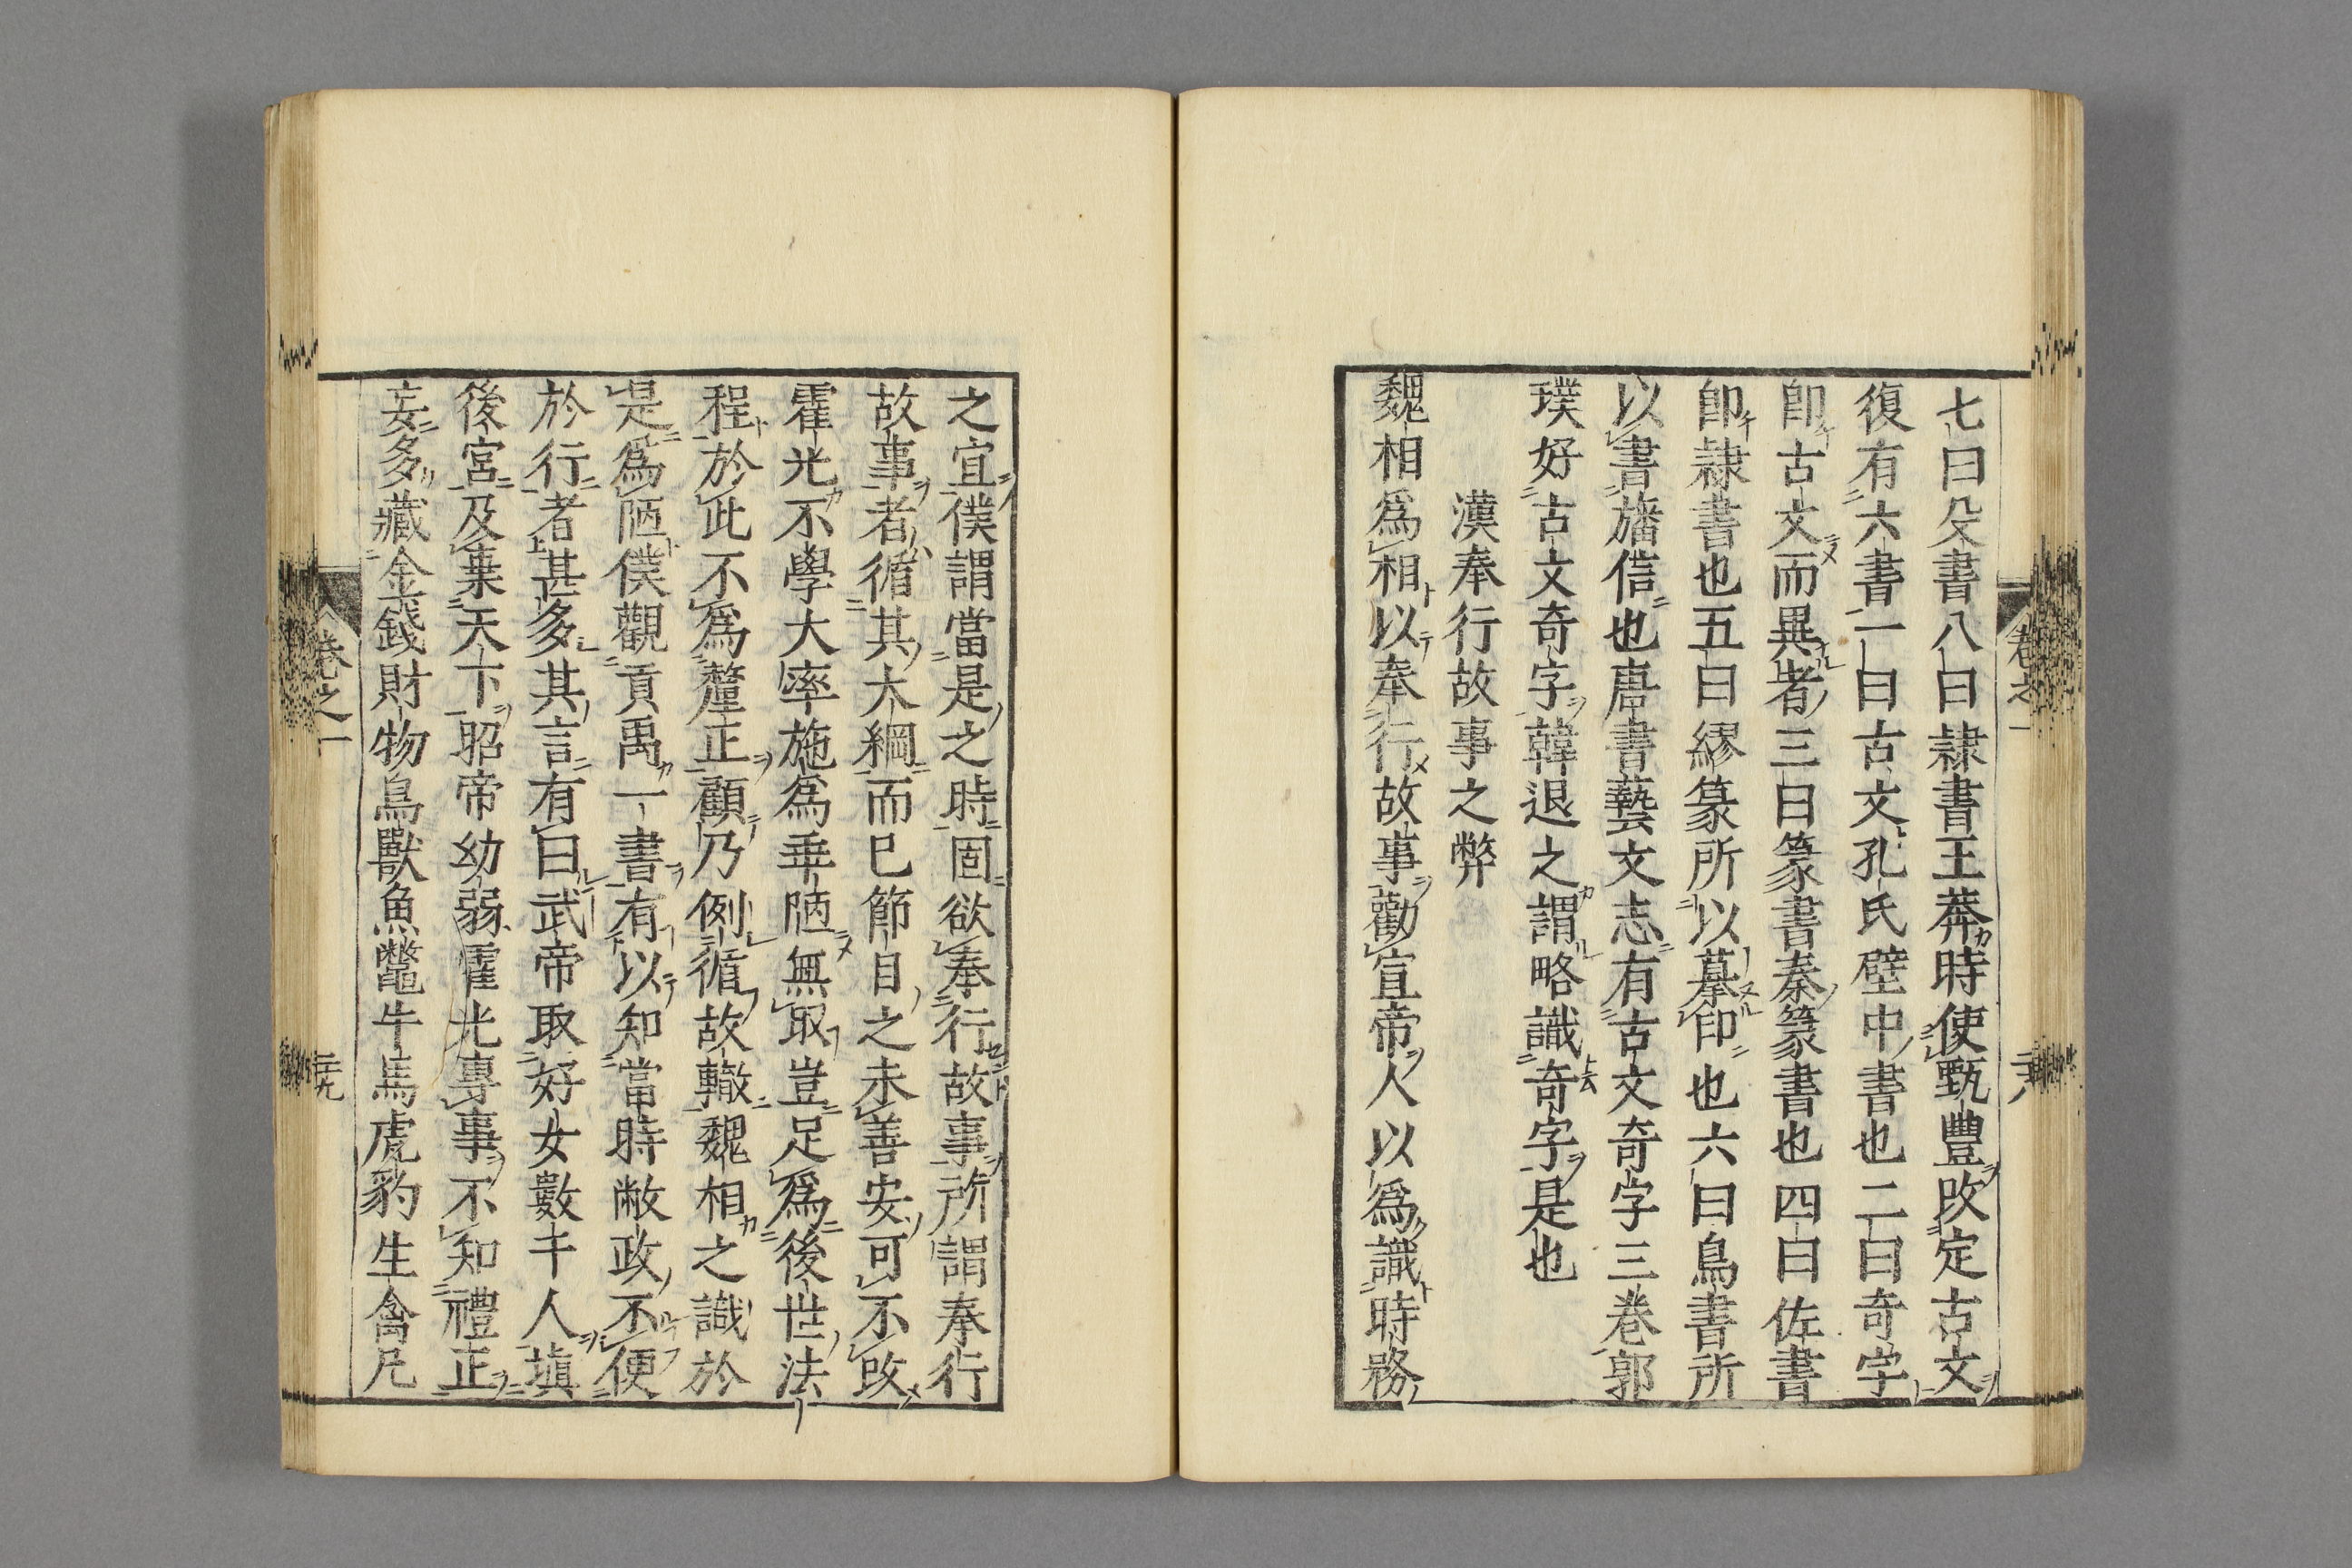 七曰殳書八曰隷書王莽時使甄豐改定古文
復有六書一曰古文孔氏壁中書也二曰奇字
卽古文而異者三曰篆書秦篆書也四曰佐書
卽隷書也五曰繆篆所以摹印也六曰鳥書所
以書旛信也唐書藝文志有古文奇字三巻郭
璞好古文奇字韓退之謂略識奇字是也
漢奉行故事之弊
魏相爲相以奉行故事勸宣帝人以爲識時務
之宜僕謂當是之時固欲奉行故事所謂奉行
故事者循其大綱而已節目之未善安可不改
霍光不學大率施爲乖陋無取豈足爲後世法
程於此不爲釐正顧乃例循故轍魏相之識於
是爲陋僕觀貢禹一書有以知當時敝政不便
於行者甚多其言有曰武帝取好女數千人塡
後宮及棄天下昭帝幼弱霍光專事不知禮正
妄多藏金錢財物鳥獸魚鼈牛馬虎豹生禽凡
巻之一
二十九
巻之一